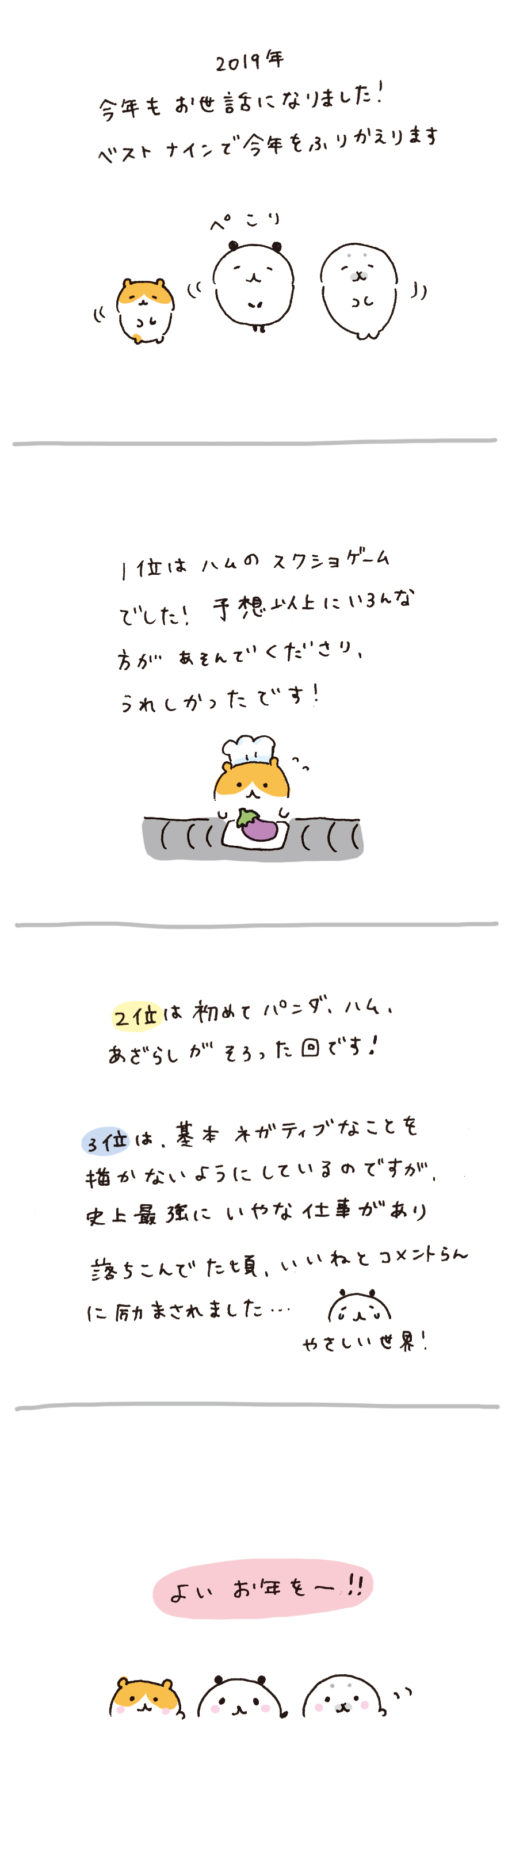 2019年
今年も お世話になりました！
ベスト ナインで今年をふりかえります
ぺこり
1位は ハムの スクショゲーム
でした！ 予想以上にいろんな
方が あそんでくださり、
うれしかったです！
2位は 初めて パンダ、ハム、
あざらしが そろった回です！
3位は、基本 ネガティブなことを
描かないようにしているのですが、
史上最強に いやな仕事があり
落ちこんでた頃、いいねとコメントらん
に励まされました…
やさしい世界！
よい お年を〜!!